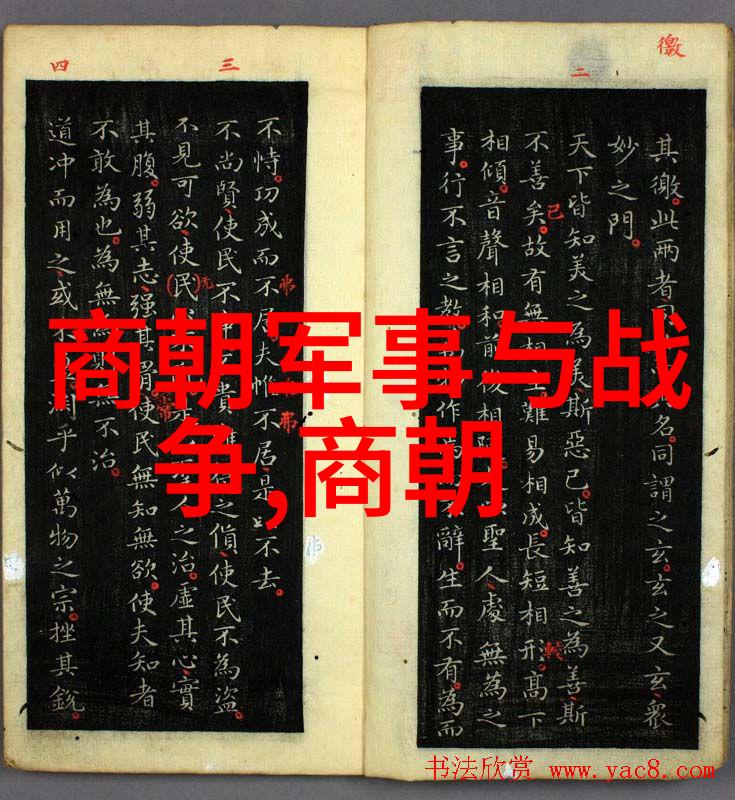 商朝军事与战
争,商朝
徼
二
其徼此两者名同謂之玄玄之又玄衆
妙之門
天下皆知美之為美斯惡已皆知善之為善斯
不善矣故有無相難易相成長短相形高下
相傾音聲相和前後相聖人處無為之
事行不言之教作辭生而不有為而
三
四
不恃功成而不居夫惟不居是以不去
不尚賢使民不貴之貨使民不為盜
不見可欲使民人之治虛其心實
其腹弱其志强其使民無知無欲使夫知者
不敢為也為無不治
道冲而用之或淵乎似萬物之宗挫其銳
书法欣赏 www.yac8.com